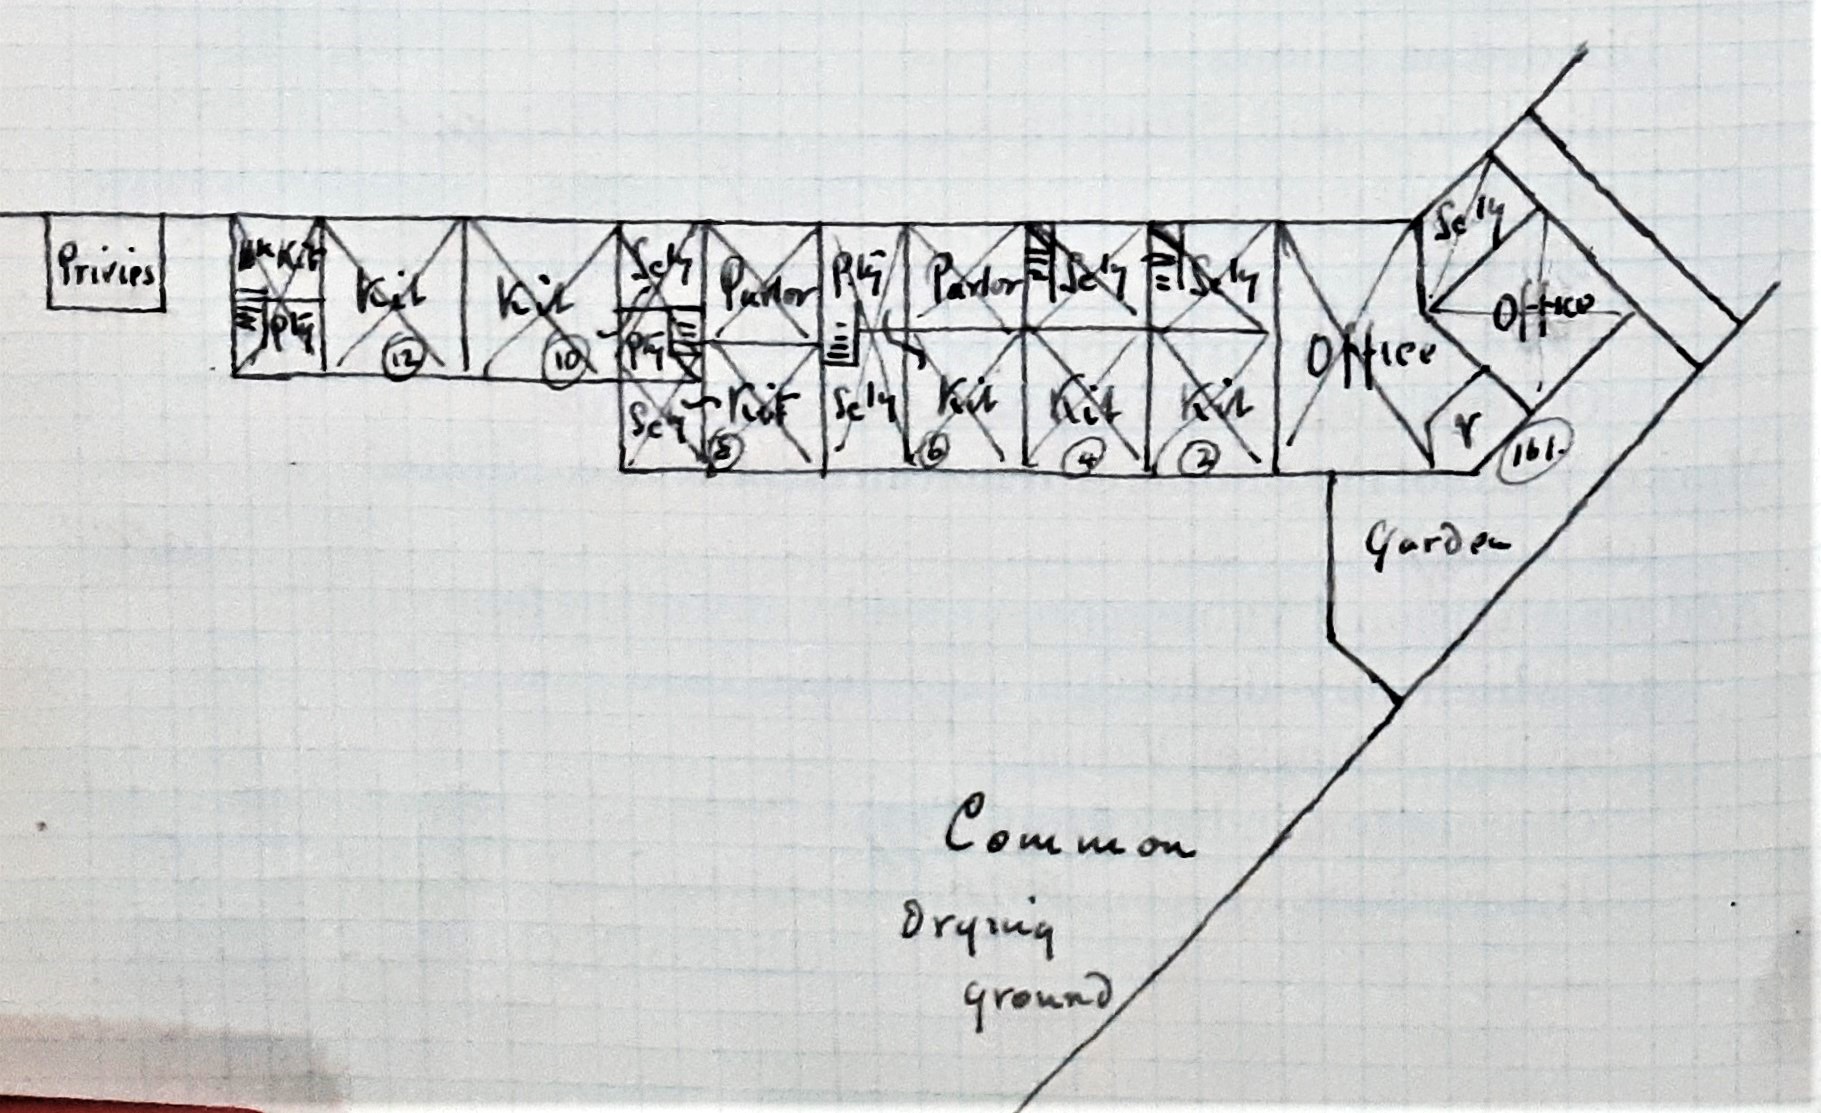 Privies
Bk Kit
Pty
Kit
12
Kit
10
Scly
Pty
Scly
Parlor
Kit
8
Pty
Scly
Parlor
Kit
6
Scly
Kit
4
Scly
Kit
2
Office
Scly
Office
V
161
Garden
Common
Drying
ground